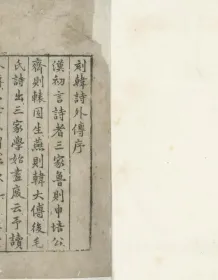 刻韓詩外傳序
漢初言詩者三家魯則申培公
齊則轅固生燕則韓大傅後毛
氏詩出三家學始盡廢云予讀